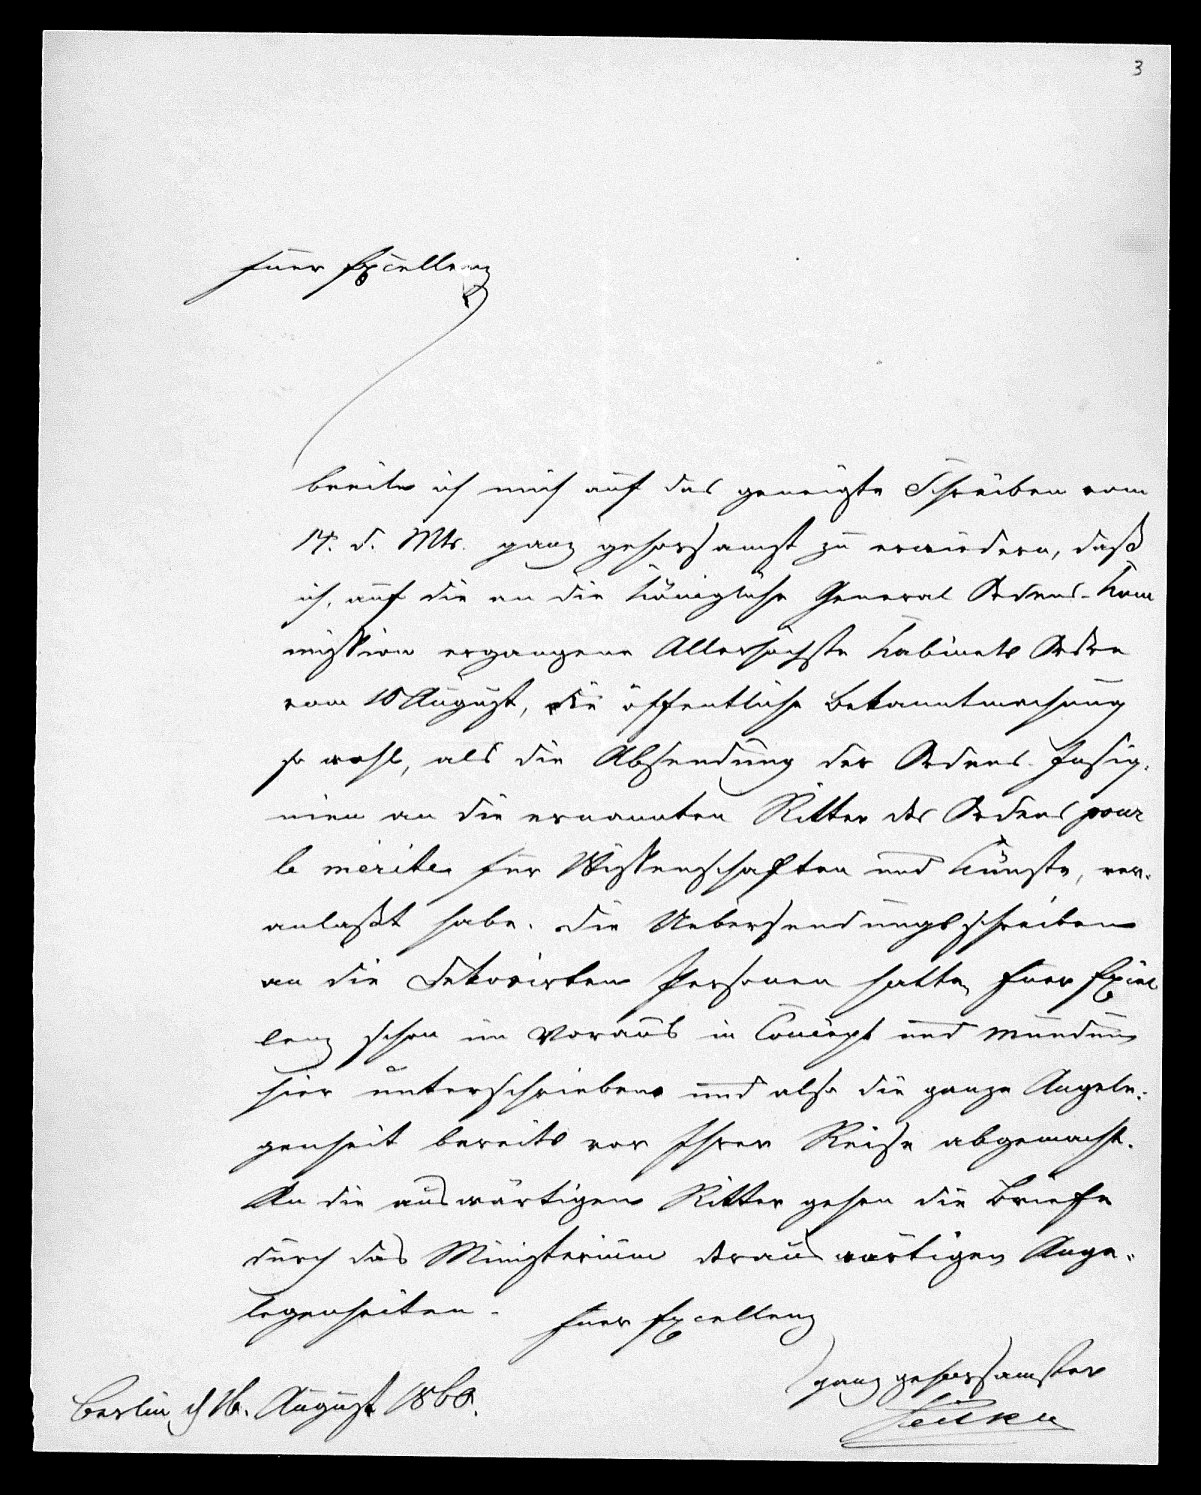 3
Euer Excellenz
beeile ich mich auf das geneigte Schreiben vom
14. d. Mts. ganz gehorsamst zu erwiedern, daß
ich, auf die an die Königliche General Ordens-Kom
mission ergangene Allerhöchste Kabinets Ordre
vom 10 August, die öffentliche Bekanntmachung
so wohl, als die Absendung der Ordens-Insig-
nien an die ernannten Ritter des Ordens pour
le mérite für Wissenschaften und Künste, ver-
anlaßt habe. Die Uebersendungsschreiben
an die dekorirten Personen hatte Euer Excel
lenz schon im Voraus in Concept und Mundum
hier unterschrieben und also die ganze Angele-
genheit bereits vor Ihrer Reise abgemacht.
An die auswärtigen Ritter gehen die Briefe
durch das Ministerium der auswärtigen Ange-
legenheiten.
Euer Excellenz
ganz gehorsamster
Berlin d 16. August 1860.